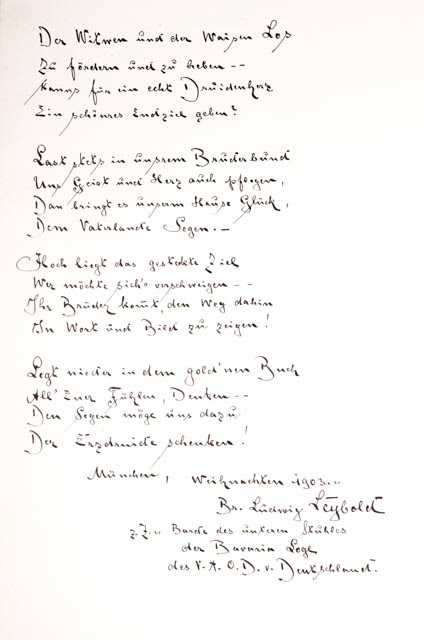 Der Witwen und der Waisen Los
Zu fördern und zu heben --
Kanns für ein echt Druidenherz
Ein schönres Endziel geben?
Lasst stets in unsrem Bruderbund
Uns Geist und Herz auch pflegen,
Dan bringt es unserm Hause Glück,
Dem Vaterlande Segen. –
Hoch liegt das gesteckte Ziel
Wer möchte sich's verschweigen --
Ihr Brüder kom̅t, den Weg dahin
In Wort und Bild zu zeigen!
Legt nieder in dem gold'nen Buch
All' Euer Fühlen, Denken --
Den Segen möge uns dazu
Der Erzdruide schenken!
München, Weihnachten 1903.
Br. Ludwig Leybold
z. Z. Barde des unteren Stuhles
der Bavaria Loge
des V. A. O. D. v. Deutschland.